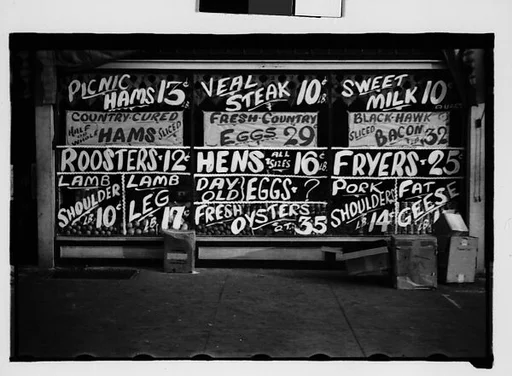 PICNIC
HAMS 13¢
COUNTRY-CURED
HALF OR WHOLE HAMS SLICED
ROOSTERS·12¢
LAMB
SHOULDER
LB. 10¢
LAMB
LEG
LB. 17¢
VEAL
STEAK 10¢ LB.
FRESH-COUNTRY
EGGS 29
HENS ALL SIZES 16¢ LB.
DAY OLD EGGS·?
FRESH OYSTERS QT. 35
SWEET
MILK 10¢
BLACK-HAWK
SLICED BACON 32
FRYERS·25¢
PORK
SHOULDERS
LB. 14¢
FAT
GEESE
LB.